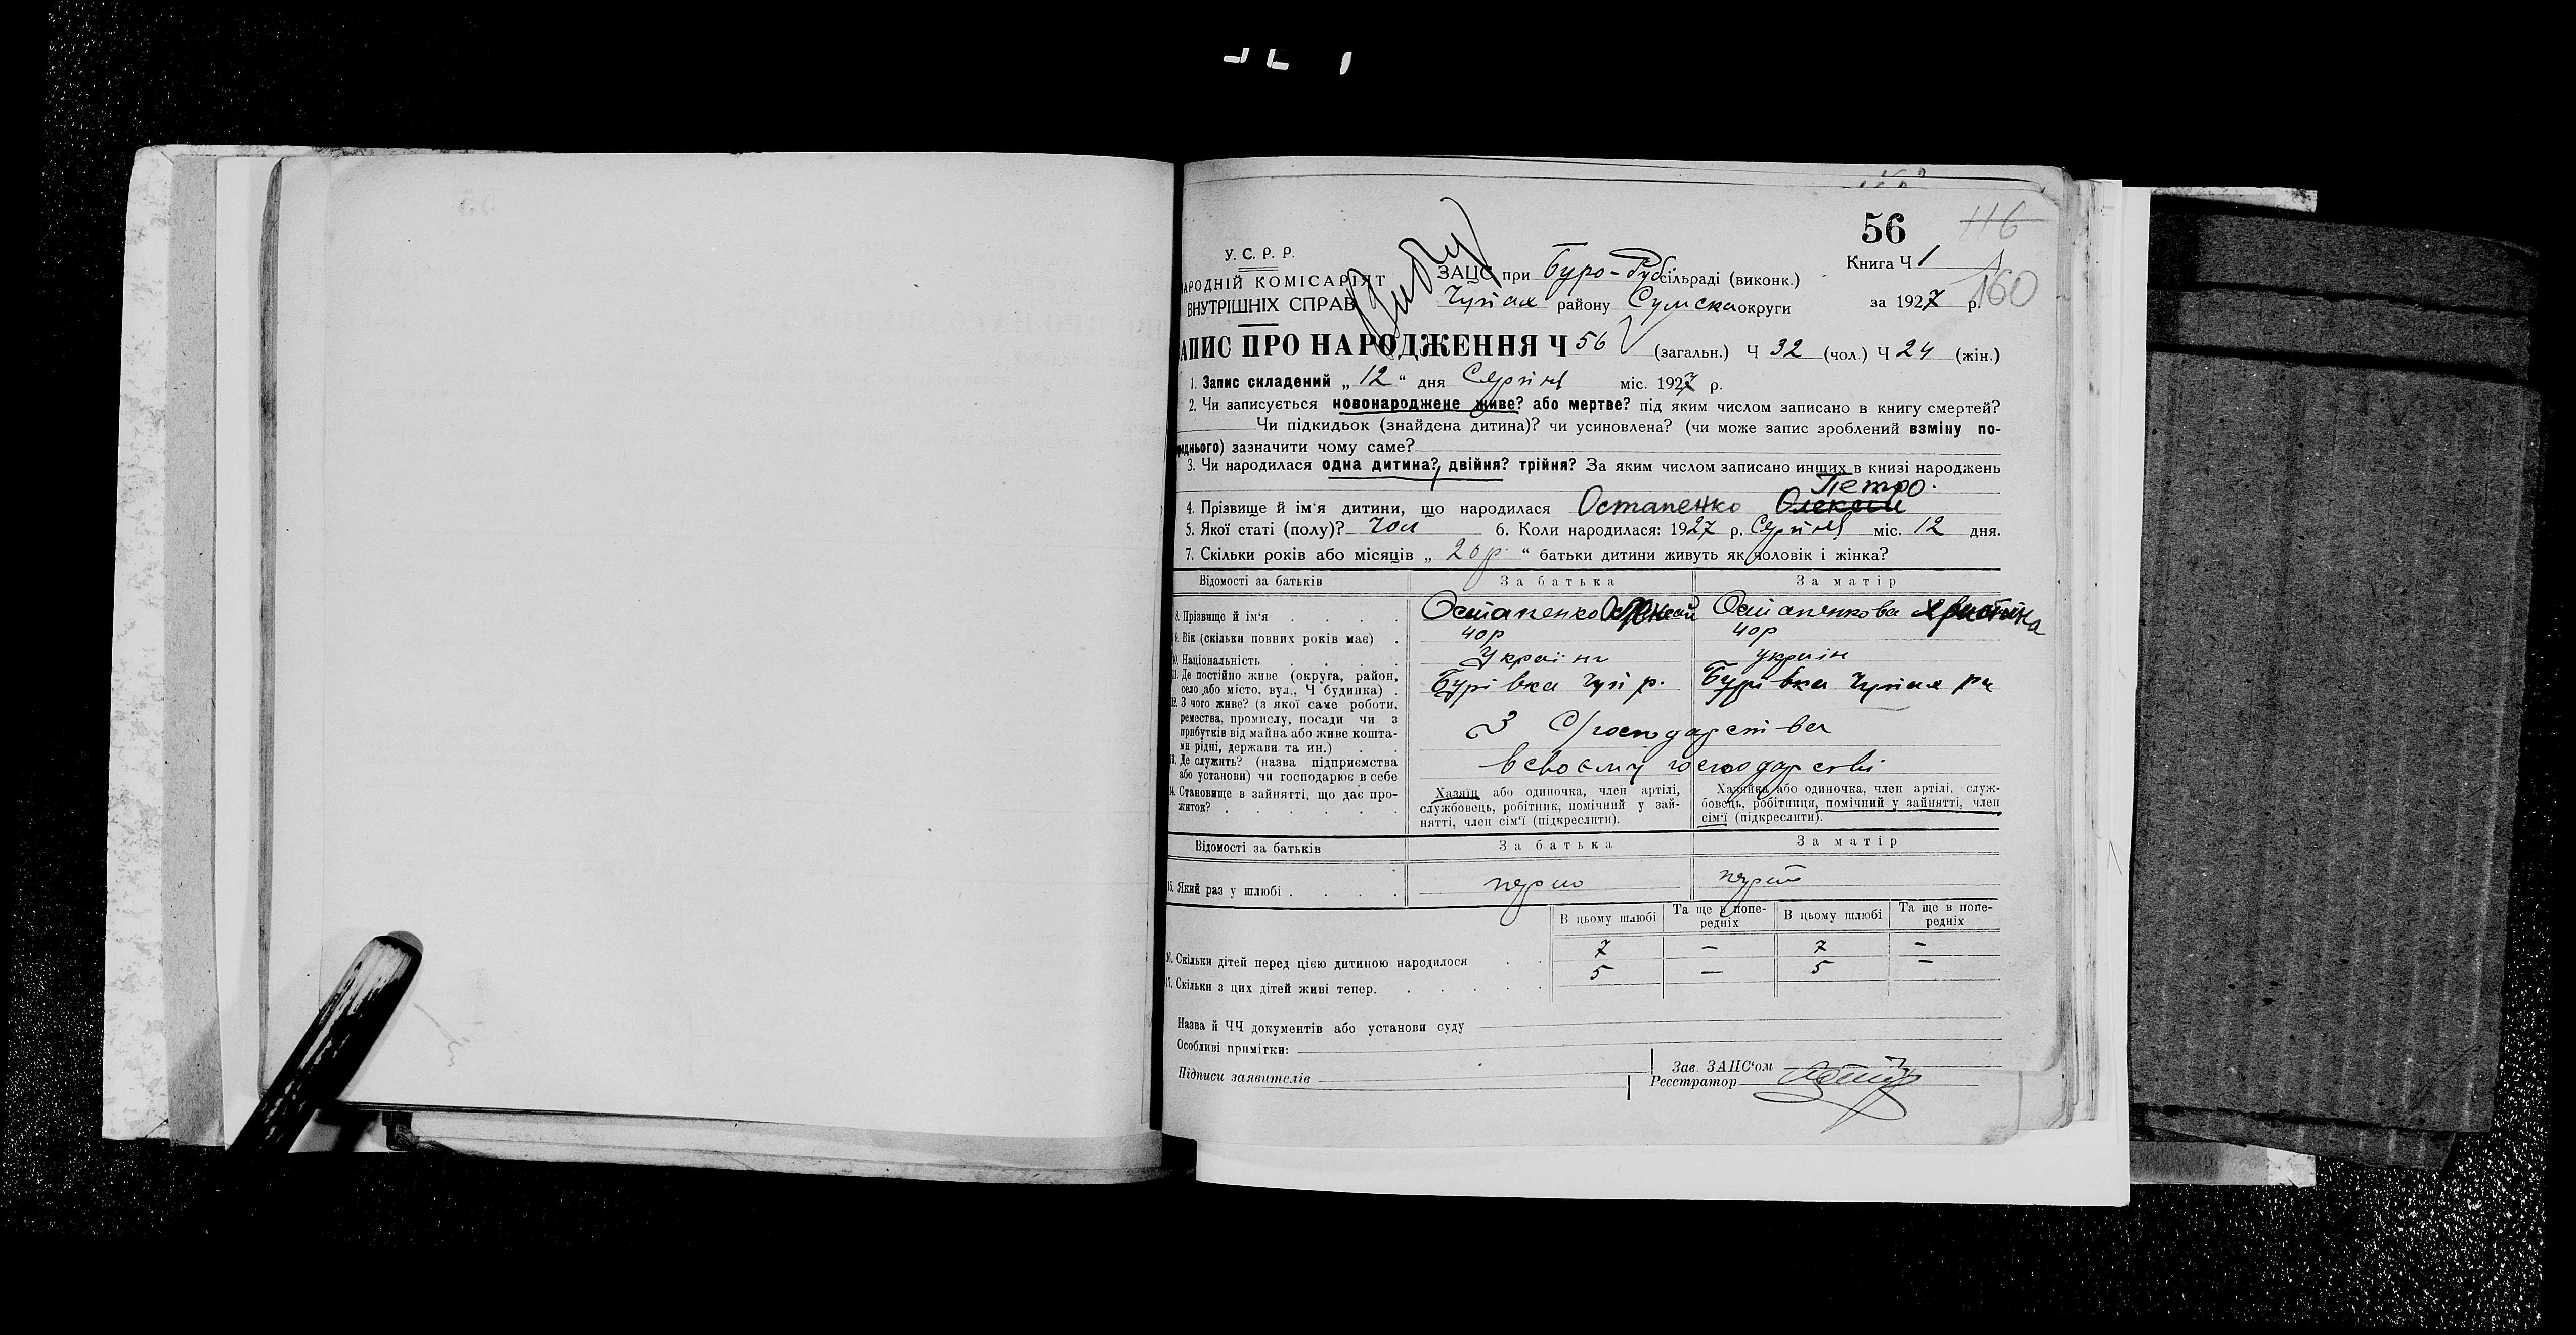 56 116
У. С. Р. Р.
НАРОДНІЙ КОМІСАРІЯТ
ВНУТРІШНІХ СПРАВ
ЗАЦС при Буро-Руб сільраді (виконк.)
Книга Ч 1
160
Чупах району Сумска округи за 1927 р.
ЗАПИС ПРО НАРОДЖЕННЯ Ч 56 (загальн.) Ч 32 (чол.) Ч 24 (жін.)
1. Запис складений „ 12 “ дня Серпня міс. 1927 р.
2. Чи записується новонароджене живе? або мертве? під яким числом записано в книгу смертей?
Чи підкидьок (знайдена дитина)? чи усиновлена? (чи може запис зроблений взміну по-
реднього) зазначити чому саме?
3. Чи народилася одна дитина? двійня? трійня? За яким числом записано инших в книзі народжень
Петро.
4. Прізвище й ім'я дитини, що народилася Остапенко Олексій
5. Якої статі (полу)? чол 6. Коли народилася: 1927 р. Серпня міс. 12 дня.
7. Скільки років або місяців „ 20 р. “ батьки дитини живуть як чоловік і жінка?
Відомості за батьків За батька За матір
8. Прізвище й ім'я Остапенко Остапенкова Христина
9. Вік (скільки повних років має) 40 р 40 р
10. Національність Україн україн
11. Де постійно живе (округа, район,
село або місто, вул., Ч будинка) Бурівка Чуп р. Бурівка Чупах р
12. З чого живе? (з якої саме роботи,
ремества, промислу, посади чи з
прибутків від майна або живе кошта-
ми рідні, держави та ин.) З С/господарства
13. Де служить? (назва підприємства
або установи) чи господарює в себе в своєму господарстві
14. Становище в зайнятті, що дає про-
житок?
Хазяїн або одиночка, член артілі,
службовець, робітник, помічний у зай-
нятті, член сім'ї (підкреслити).
Хазяйка або одиночка, член артілі, служ-
бовець, робітниця, помічний у зайнятті, член
сім'ї (підкреслити).
Відомості за батьків За батька За матір
15. Який раз у шлюбі перш перш
В цьому шлюбі Та ще в попе- В цьому шлюбі Та ще в попе-
редніх редніх
16. Скільки дітей перед цією дитиною народилося 7 — 7 —
17. Скільки з цих дітей живі тепер. 5 — 5 —
Назва й ЧЧ документів або установи суду
Особливі примітки:
Зав. ЗАЦС'ом
Підписи заявителів
Реєстратор